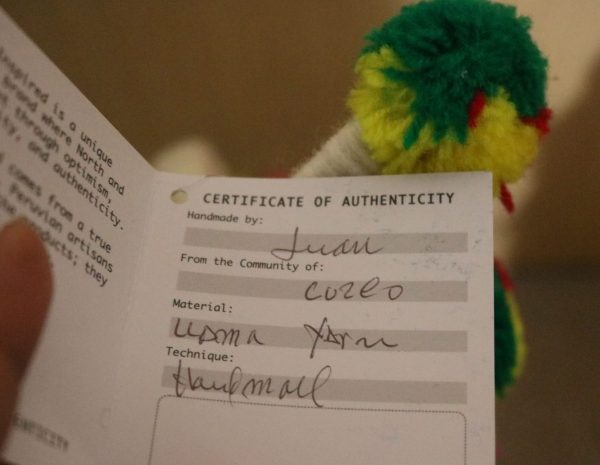 nspired is a unique
brand where North and
through optimism,
ty, and authenticity.
comes from a true
Peruvian artisans
products; they
CERTIFICATE OF AUTHENTICITY
Handmade by:
Juan
From the Community of:
cuzco
Material:
Llama Yarn
Technique:
Handmade